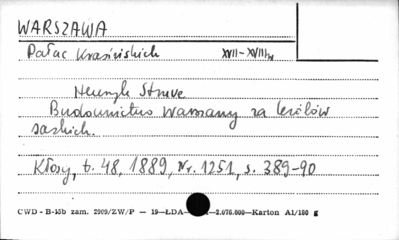 WARSZAWA
Pałac Krasińskich XVII-XVIII w
Henryk Struve
Budownictwo Warszawy za królów
saskich.
Kłosy, t. 48, 1889, Nr. 1251, s. 389-90
CWD - B-15b zam. 2909/ZW/P — 19—ŁDA— —2.076.000—Karton A1/180 g